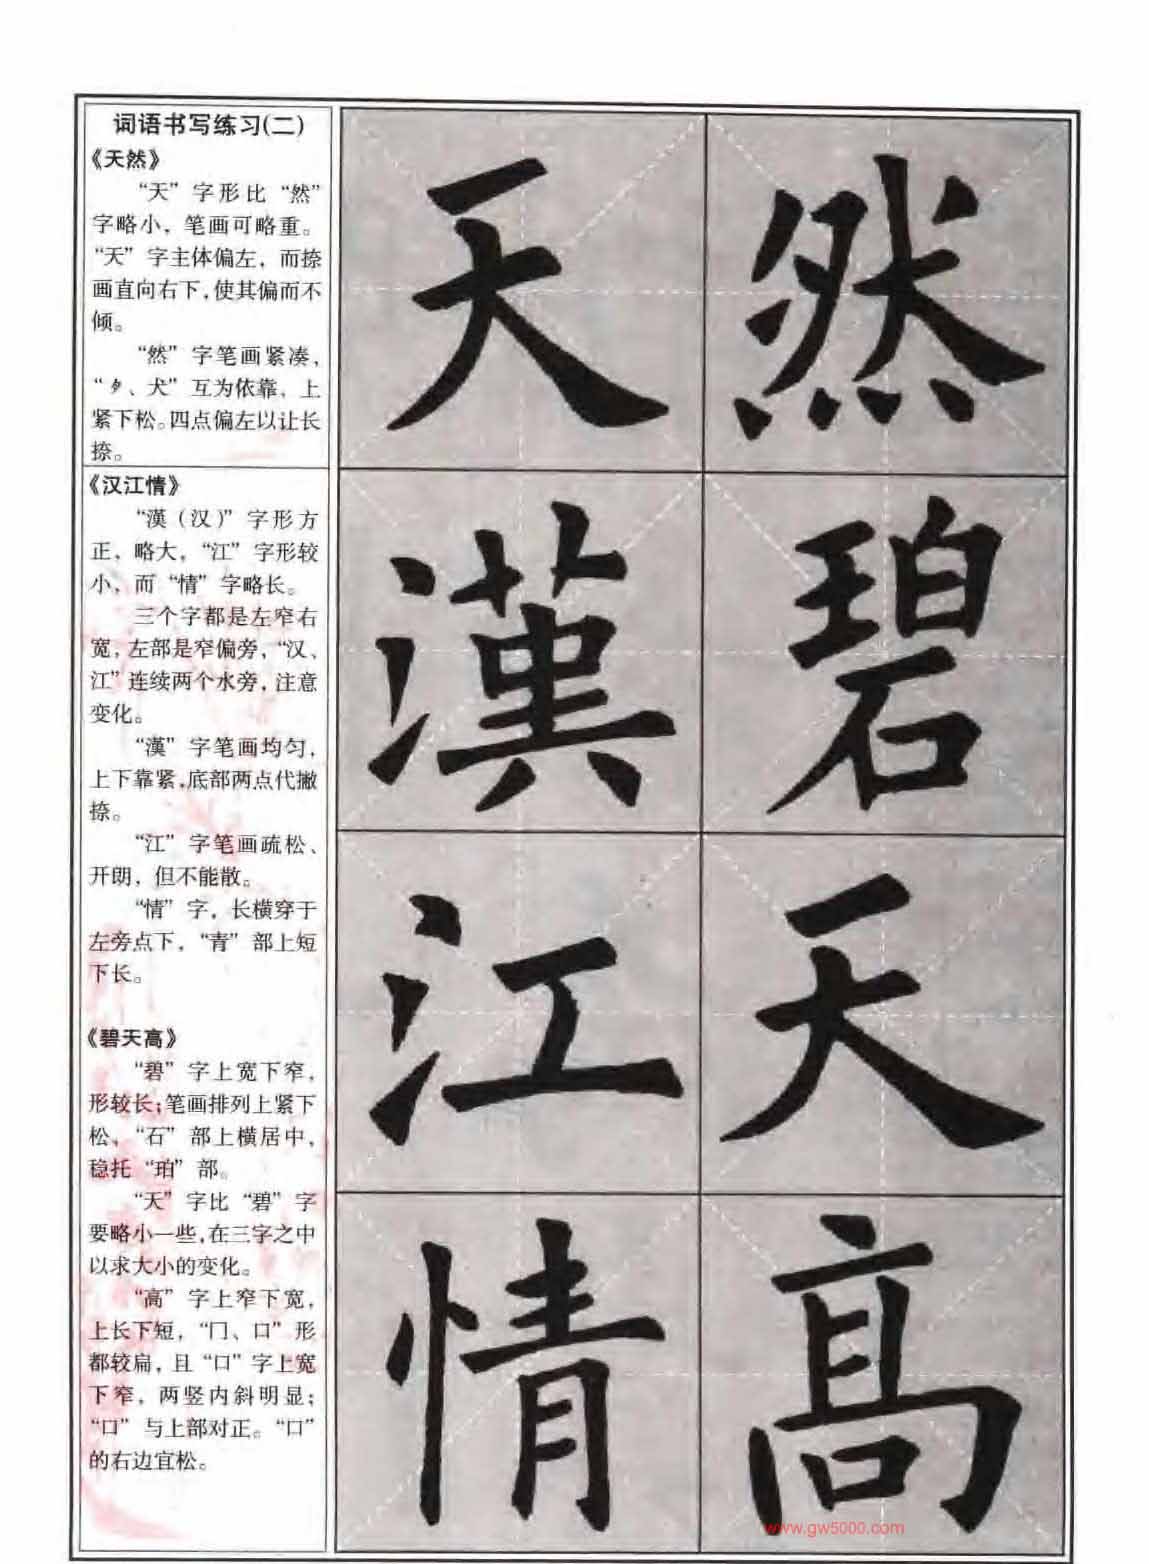 词语书写练习(二)
《天然》
“天”字形比“然”
字略小，笔画可略重。
“天”字主体偏左，而捺
画直向右下，使其偏而不
倾。
“然”字笔画紧凑，
“⺼、犬”互为依靠，上
紧下松。四点偏左以让长
捺。
《汉江情》
“漢（汉）”字形方
正，略大，“江”字形较
小，而“情”字略长。
三个字都是左窄右
宽，左部是窄偏旁，“汉、
江”连续两个水旁，注意
变化。
“漢”字笔画均匀，
上下靠紧，底部两点代撇
捺。
“江”字笔画疏松、
开朗，但不能散。
“情”字，长横穿于
左旁点下，“青”部上短
下长。
《碧天高》
“碧”字上宽下窄，
形较长；笔画排列上紧下
松，“石”部上横居中，
稳托“珀”部。
“天”字比“碧”字
要略小一些，在三字之中
以求大小的变化。
“高”字上窄下宽，
上长下短，“冂、口”形
都较扁，且“口”字上宽
下窄，两竖内斜明显；
“口”与上部对正。“口”
的右边宜松。
天然
漢
江
情
碧
天
高
www.gw5000.com